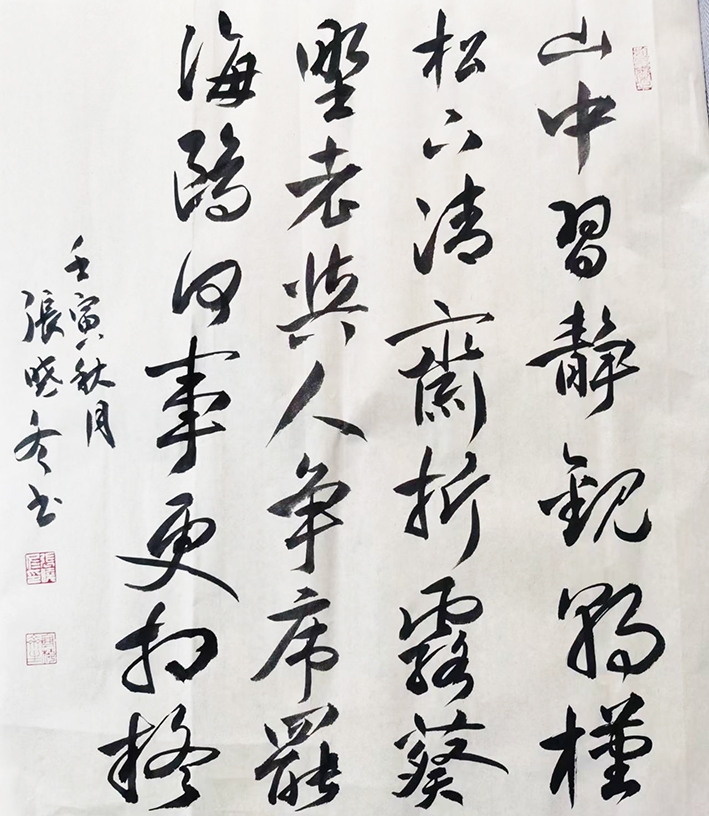 山中習靜觀朝槿
松下清齋折露葵
墅老與人争席罷
海鷗何事更相疑
壬寅秋月
張晓冬书